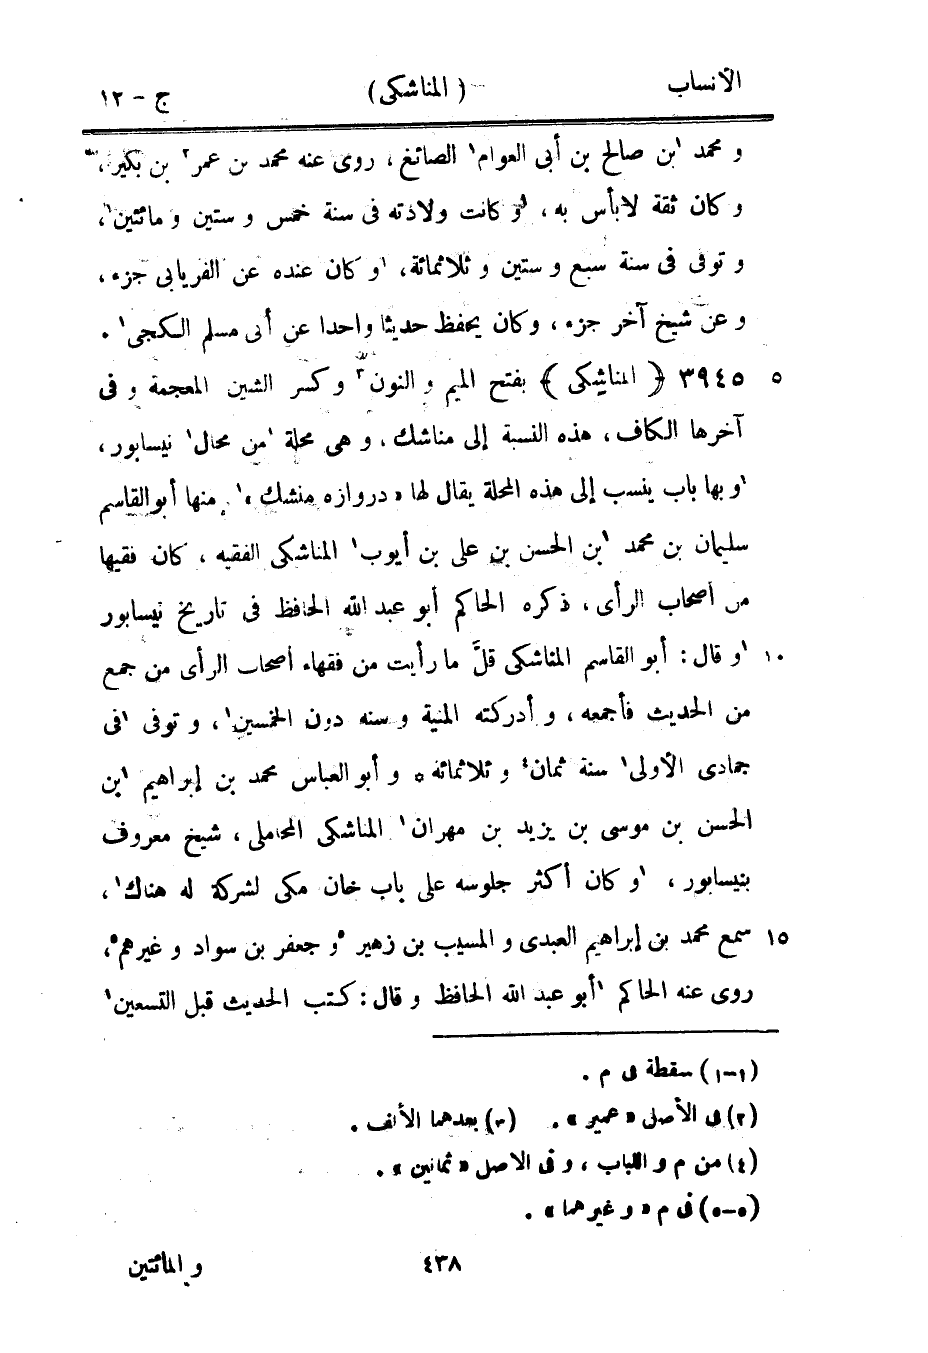 الأنساب ( المناشكى ) ج - ١٢
و محمد ١بن صالح بن أبى العوام١ الصائغ ، روى عنه محمد بن عمر٢ بن بكير ،
و كان ثقة لابأس به ، ١و كانت ولادته فى سنة خمس و ستين و مائتين١ ،
و توفى فى سنة سبع و ستين و ثلاثمائة ، ١و كان عنده عن الفريابى جزء ،
و عن شيخ آخر جزء ، وكان يحفظ حديثا واحدا عن أبى مسلم الكجى١ .
٥ ٣٩٤٥ ﴿ المناشِكى ﴾ بفتح الميم و النون٣ و كسر الشين المعجمة و فى
آخرها الكاف ، هذه النسبة إلى مناشك ، و هى محلة ١من محال١ نيسابور ،
١و بها باب ينسب إلى هذه المحلة يقال لها « دروازه منشك »١ . منها أبو القاسم
سليمان بن محمد ١بن الحسن بن على بن أيوب١ المناشكى الفقيه ، كان فقيها
من أصحاب الرأى ، ذكره الحاكم أبو عبد الله الحافظ فى تاريخ نيسابور
١٠ ١و قال : أبو القاسم المناشكى قلَّ ما رأيت من فقهاء أصحاب الرأى من جمع
من الحديث فأجمعه ، و أدركته المنية و سنه دون الخمسين١ ، و توفى ١فى
جمادى الأولى١ سنة ثمان٤ و ثلاثمائة ٥ و أبو العباس محمد بن إبراهيم ١بن
الحسن بن موسى بن يزيد بن مهران١ المناشكى المحاملى ، شيخ معروف
بنيسابور ، ١و كان أكثر جلوسه على باب خان مكى لشركة له هناك١ ،
١٥ سمع محمد بن إبراهيم العبدى و المسيب بن زهير ٥و جعفر بن سواد و غيرهم٥ ،
روى عنه الحاكم ١أبو عبد الله الحافظ و قال : كتب الحديث قبل التسعين١
(١-١) سقطة فى م .
(٢) فى الأصل « عمير » . (٣) بعدهما الألف .
(٤) من م و اللباب ، و فى الاصل « ثمانين » .
(٥-٥) فى م « و غيرهما » .
٤٣٨ و المائتين